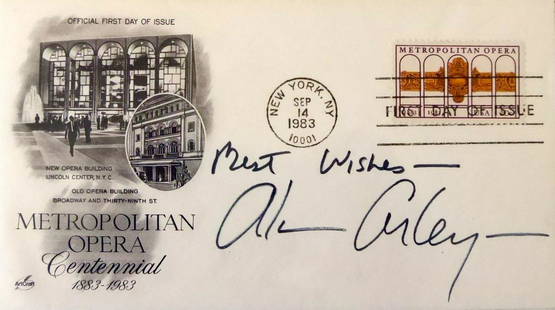 OFFICIAL FIRST DAY OF ISSUE
NEW OPERA BUILDING
LINCOLN CENTER, N.Y.C.
OLD OPERA BUILDING
BROADWAY AND THIRTY-NINTH ST.
METROPOLITAN
OPERA
Centennial
1883-1983
ArtCraft
NEW YORK, NY
SEP
14
1983
10001
METROPOLITAN OPERA
FIRST DAY OF ISSUE
Best Wishes —